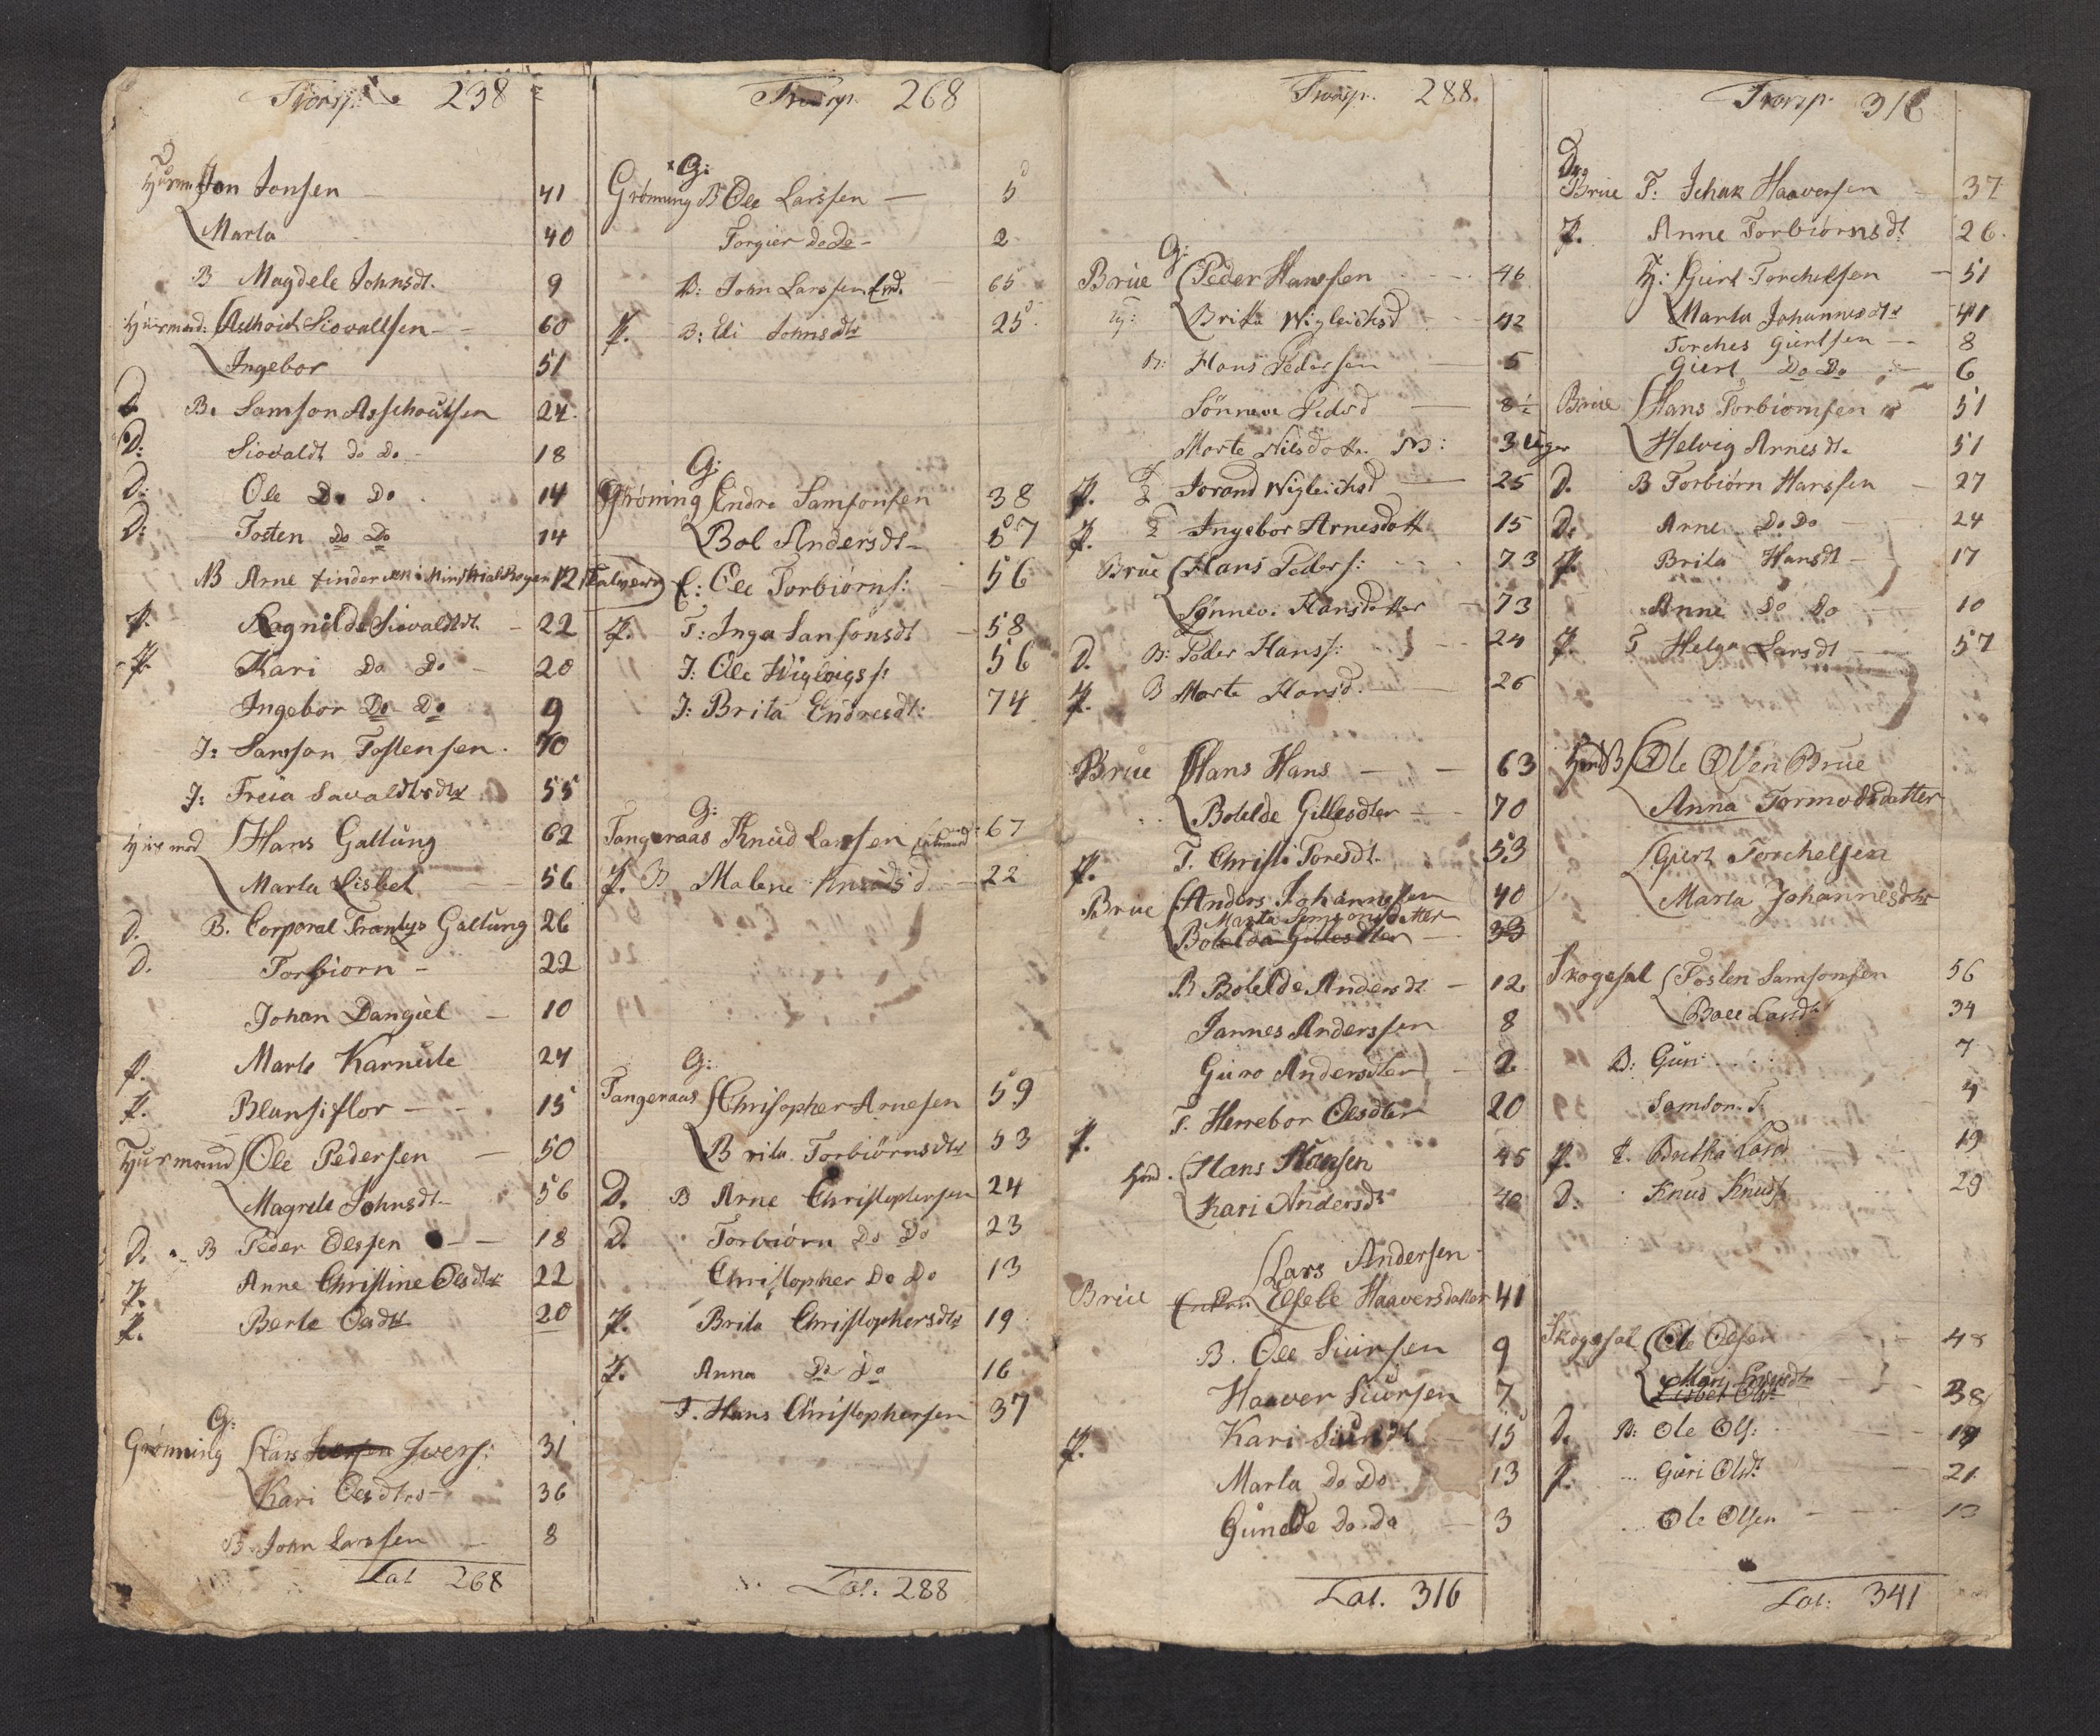 Transp. 238
Huusm. Jon Jonsen 41
Marta 40
B Magdele Johnsdt. 9
Huusmand: Asthoid Siovaltsen 60
Ingebor 51
D. B. Samson Asschoutsen 24
D: Siovaldt do Do 18
D: Ole Do Do 14
D: Tosten Do Do 14
NB Arne 12
P. Ragnilde Siovaldtdt. 22
P. Kari Do Do 20
Ingebor Do Do 9
I: Samson Tostensen. 70
I: Freia Savaldtsdtr 55
Huusmd Hans Galtung 62
Marta Lisbet 56
D. B. Corporal Frantys Galtung 26
D. Torbiorn 22
Johan Dangiel 10
P. Marte Karnute 24
P. Blansiflor 15
Huusmand Ole Pedersen 50
Magrete Johnsdt 56
D. B Peder Olessen 18
P. Anne Christine Olesdtr 22
P. Berte Oesdtr 20
G:
Grønning Lars Iversen Ivers: 31
Kari Oesdtrs 36
B. John Larssen 8
Lat 268
Transp. 268
G:
Grønning B Ole Larssen 5
Torgier do do 2
B: John Larssen End. 65
P. B: Eli Johnsdtr 25
G:
Grøning Endre Samsonsen 38
Bol Andersdt 57
Talvern E: Ole Torbiørns: 56
P. T: Inga Samsonsdt 58
I: Ole Wiglvigs: 56
I: Brita Endresdt: 74
G:
Tangeraas Knud Larssen Enkemand 67
P. B Malene Knudsd 22
G:
Tangeraas Christopher Arnesen 59
Brita Torbiørnsdtr 53
D. B Arne Christophersen 24
D. Torbiørn Do Do 23
Christopher Do Do 13
P. Brita Christophersdtr 19
P. Anna Do Do 16
T. Hans Christophersen 37
Lat. 288
Transp. 288.
G:
Brue Peder Hanssen 46
Brita Wigleichsd 42
B: Hans Pedersen 5
Sønneve Pedsd 8½
Marte Nilsdottr NB: 3 Uger
P. T Jorand Wigleichsd 25
P. T Ingebor Arnesdott 15
Brue Hans Peders: 73
Sønnev: Hansdotter 73
D. B: Peder Hanss: 24
P. B Marte Hansd. 26
Brue Hans Hans 63
Botelde Gillesdter 70
P. T. Christi Toresdt. 53
Brue Anders Johannessen 40
Marta Simonsdatter
Botelda Gillesdter 33
B Botelde Andersdt 12
Jannes Anderssen 8
Guro Andersdter 2
P. T. Herrebor Olesdter 20
Hmd. Hans Hansen 45
Kari Andersdt 40
Lars Andersen
Brue Enken Elsebe Haaversdatter 41
B. Ole Siursen 9
Haaver Siursen 7
P. Kari Siursdt 15
Marta Do Do 13
Gunelde Do. Do 3
Lat. 316
Transp. 316
Brue T: Ichak Haaversen 37
P. Anne Torbiørnsdt 26
H: Giert Torchelsen 51
Marta Johannesdtr 41
Torches Giertsen 8
Giert Do Do 6
Brue Hans Torbiornsen 51
Helvig Arnesdt. 51
D. B Torbiørn Hanssen 27
D. Arne Do Do 24
P. Brita Hansdt 17
Anne Do Do 10
P. T Helga Larsdt 57
Ole Olsen Brue
Anna Tormodsdatter
Giert Torchelsen
Marta Johannesdtr
Skogesal Tosten Samsonsen 56
Boel Larsdt 34
B: Guri 7
Samson T. 4
P. T. Britha Larsd 19
D. Knud Knuds 29
Skogesal Ole Olsen 48
Mari Knudsdtr
Lisbet Olsdt 38
D. B: Ole Ols: 19
P. Guri Olsdt 21
Ole Olsen 13
Lat: 341